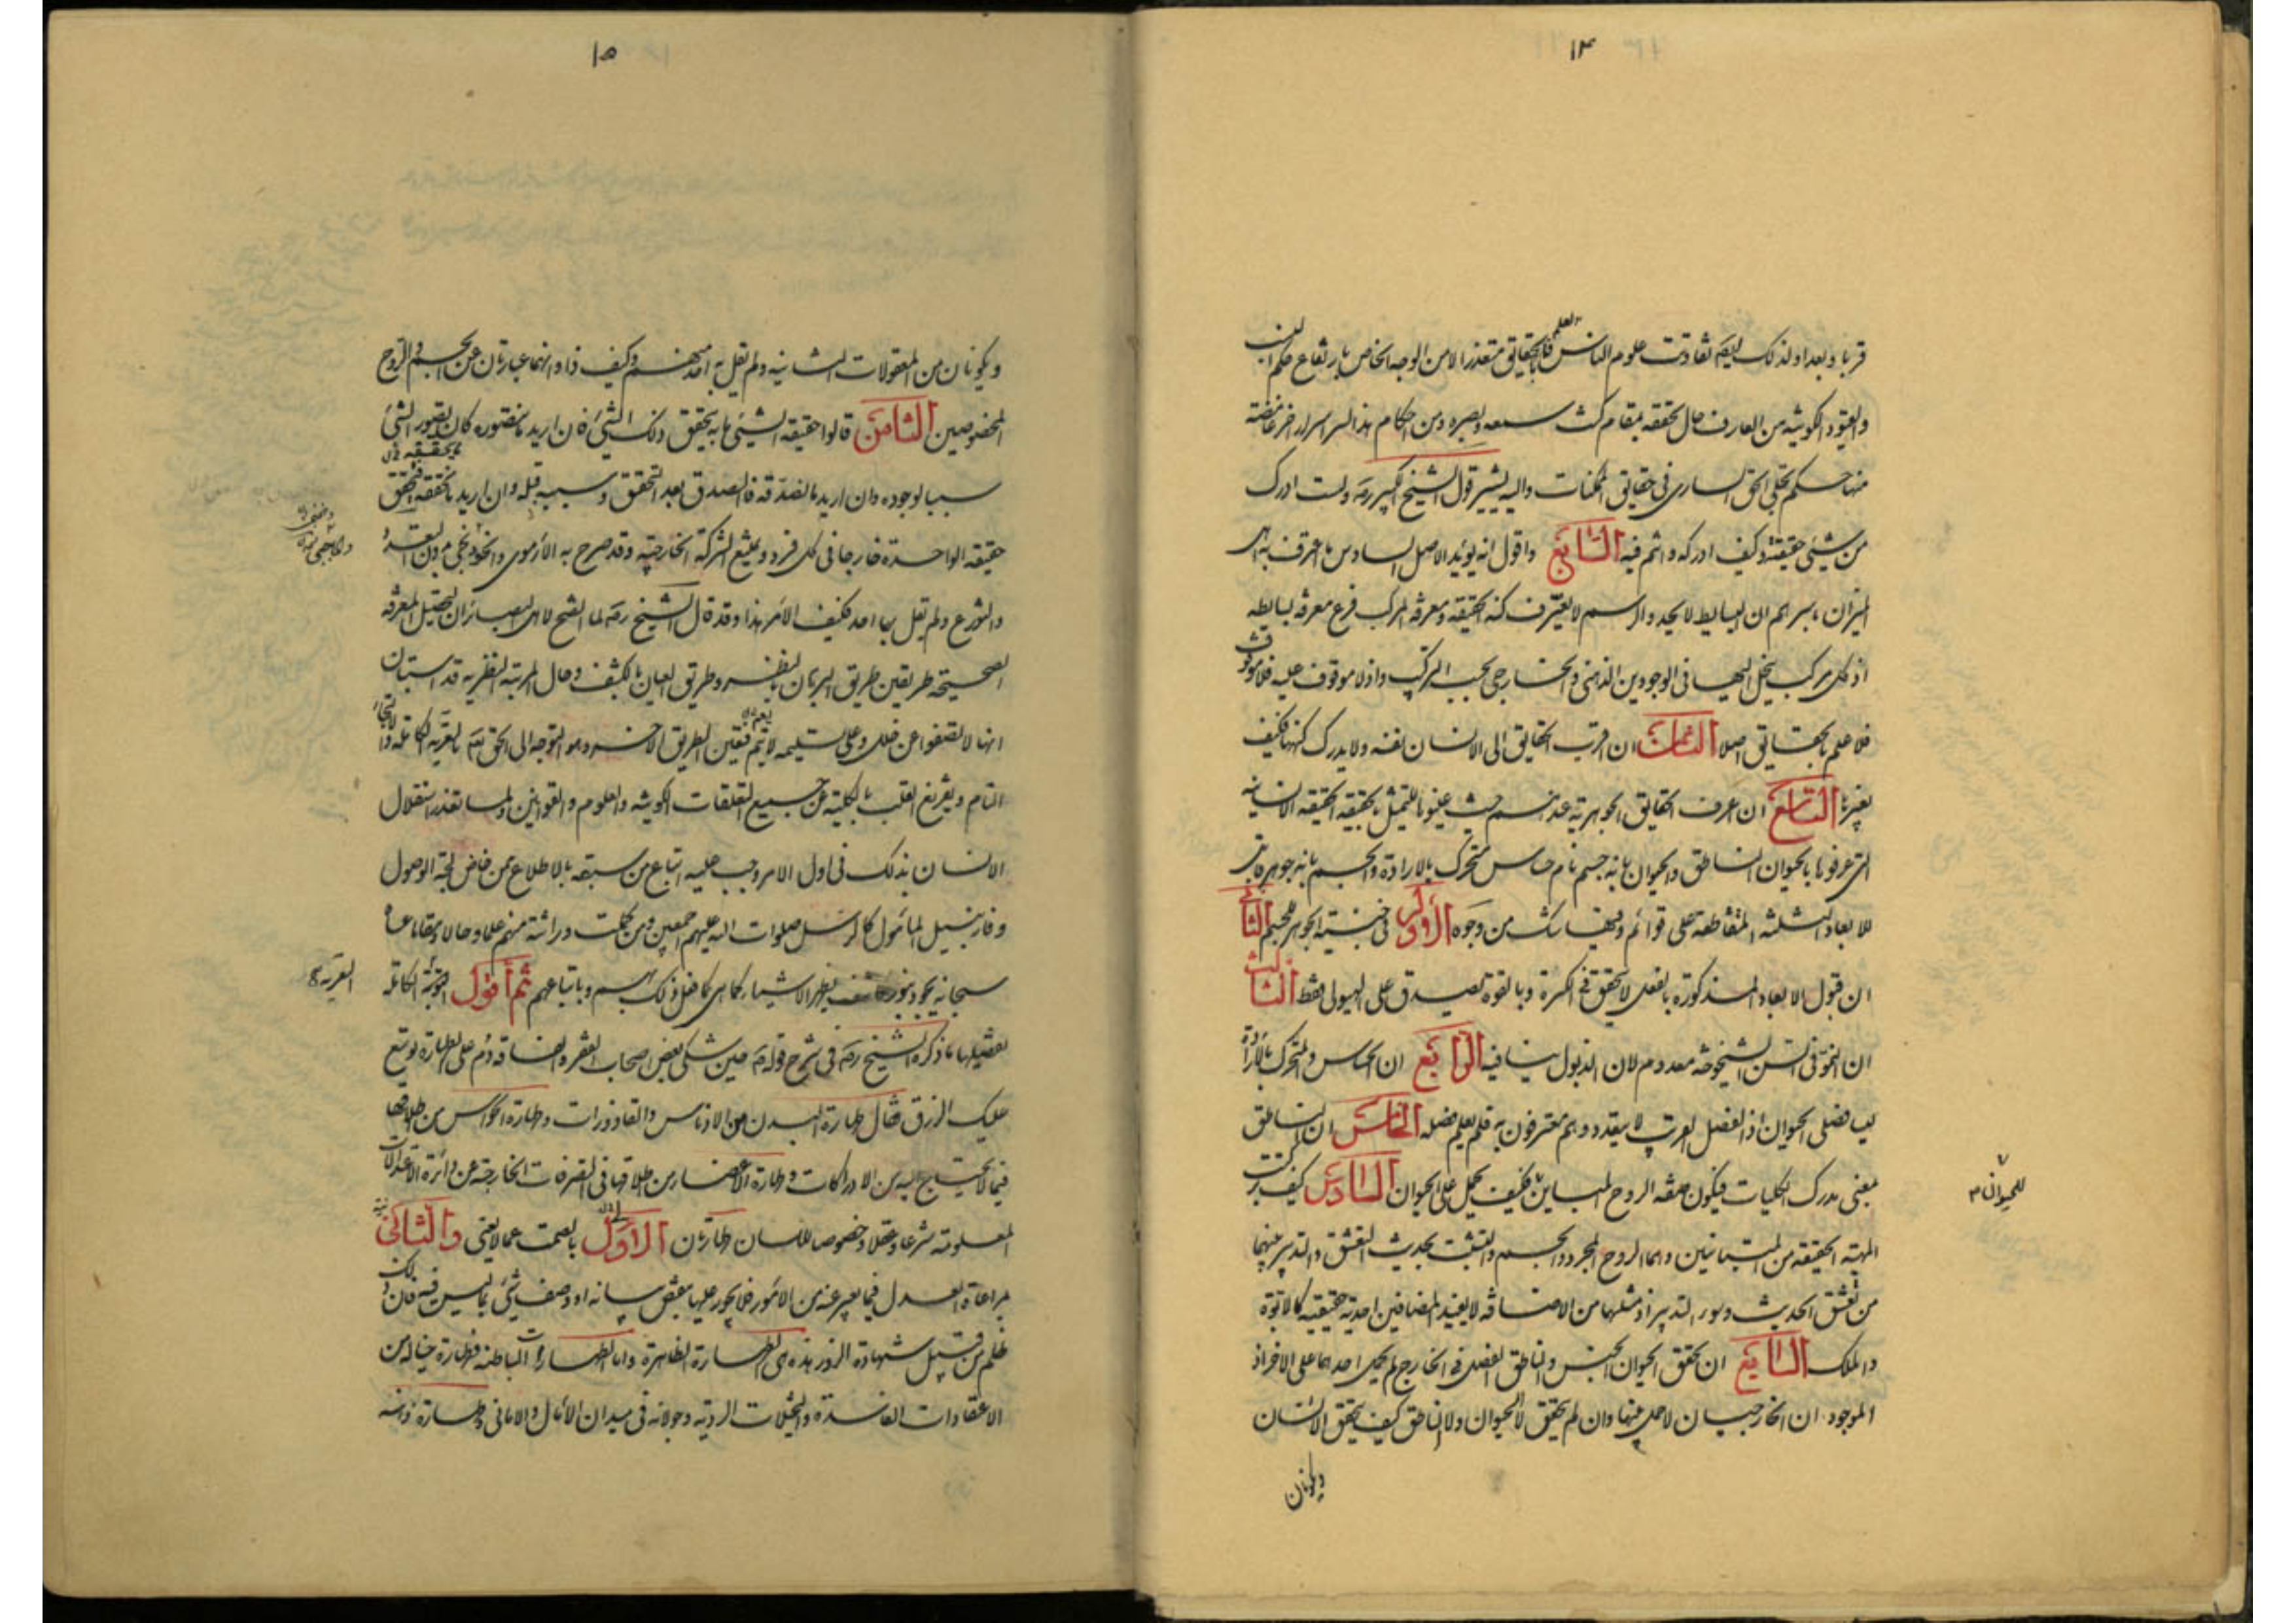 ١٤
قربا وبعدا ولذلك ايضا تفاوتت علوم الناس فالعلم بالحقايق متعذر الا من الوجه الخاص بارتفاع حكم النسب
والقيود الكونية من العارف حال تحققه بمقام كنت سمعه وبصره ومن احكام هذا السر اسرار اخر غامضة
منها حكم تجلى الحق السارى فى حقايق الممكنات واليه يشير قول الشيخ الكبير رضه ولست ادرك
من شيئ حقيقته وكيف ادركه وانتم فيه السابع واقول انه يؤيد الاصل السادس ما اعترف به اهل
الميزان باسرهم ان البسايط لا يحد والرسم لا يعرف كنه الحقيقة ومعرفة المركب فرع معرفة بسايطه
اذ كل مركب ينحل اليها فى الوجودين الذهنى والخارجى بحسب التركيب واذ لا موقوف عليه فلا موقوف
فلا علم بالحقايق اصلا الثامن ان اقرب الحقايق الى الانسان نفسه ولا يدرك كنهها فكيف
بغيرها التاسع ان اعرف الحقايق الجوهرية عندهم حيث عينوها للتمثيل بالحقيقة الحقيقة الانسانية
التى عرفوها بالحيوان الناطق والحيوان بانه جسم نام حساس متحرك بالارادة والجسم بانه جوهر قابل
للابعاد الثلثة المتقاطعة على قوائم وفيها شك من وجوه الاول فى جنسية الجوهر للجسم الثانى
ان قبول الابعاد المذكورة بالفعل لا يتحقق فى الكرة وبالقوة تصدق على الهيولى فقط الثالث
ان النمو فى السن الشيخوخة معدوم لان الذبول ينافيه الرابع ان الحساس والمتحرك بالارادة
ليسا فصلى الحيوان اذ الفصل القريب لا يتعدد وهم معترفون به فلم يعلم فصله الخامس ان الناطق
بمعنى مدرك الكليات فيكون صفة الروح المباين فكيف يحمل على الحيوان السادس كيف تركبت
المهية الحقيقية من المتباينين وهما الروح المجرد والجسم والتشبث بحديث التعشق والتدبير بينهما
من تعشق الحديث وسوء التدبير اذ مثلهما من الاضافة لا يفيد المضافين احدية حقيقية كالابوة
والملك السابع ان تحقق الحيوان الجنس والناطق الفصل فى الخارج لم يحمل احدهما على الاخر اذ
الموجودان الخارجيان لا حمل بينهما وان لم يتحقق لا الحيوان ولا الناطق كيف يتحقق الانسان
ويكونان
للحيوان م
١٥
ويكونان من المعقولات الثانية ولم يقل به احد منهم وكيف ذا وانهما عبارتان عن الجسم والروح
المخصوصين الثامن قالوا حقيقة الشيئ ما به تحقق ذلك الشيئ فان اريد ما تصوره كان تصور الشيئ
سببا لوجوده وان اريد ما تصدقه فالصدق بعد التحقق وسببه قبله وان اريد ما تحققه فتحقق
حقيقة الواحدة خارجا فى كل فرد ويمتنع الشركة الخارجية وقد صرح به الأرموى والخونجى م دون التعدد
والتوزع ولم يقل بها احد فكيف الامر هذا وقد قال الشيخ رضه لما اتضح لاهل البصائر ان لتحصيل المعرفة
الصحيحة طريقين طريق البرهان بالنظر وطريق العيان بالكشف وحال المرتبة النظرية قد استبان
انها لا تصفوا عن خلل وعلى تسليمه لا تعم فتعين الطريق الاخر وهو التوجه الى الحق تعه بالتعرية الكاملة والالتجاء
التام وتفريغ القلب بالكلية عن جميع التعلقات الكونية والعلوم والقوانين ولما تعذر استقلال
الانسان بذلك فى اول الامر وجب عليه اتباع من سبقه بالاطلاع ممن خاض لجة الوصول
وفاز بنيل المأمول كالرسل صلوات الله عليهم اجمعين ومن كملت وراثته منهم علما وحالا ومقاما عساه
سبحانه يجود بنور يظهر الاشياء كما هى كما فعل ذلك بهم وباتباعهم ثم أقول التعرية الكاملة
تفصيلها ما ذكره الشيخ رضه فى شرح قوله صه حين شكى بعض اصحاب الفقر والفاقه دم على الطهارة يوسع
عليك الرزق فقال طهارة البدن من الادناس والقاذورات وطهارة الحواس من اطلاقها
فيما لا يحتاج اليه من الادراكات وطهارة الاعضاء من اطلاقها فى التصرفات الخارجة عن دائرة الاعتدال
المعلومة شرعا وعقلا وخصوصا للسان طهارتان الاول بالصمت عما لا يعنى والثانى
مراعاة العدل فيما يعبر عنه من الامور فلا يجور عليها بنقص بيانه او وصف شيئ بما ليس فيه فان ذلك
ظلم من قبيل شهادة الزور هذه هى الطهارة الظاهرة واما الطهارات الباطنة فطهارة خياله من
الاعتقادات الفاسدة والتخيلات الردية وجولانه فى ميدان الآمال والامانى وطهارة ذهنه
التعرية